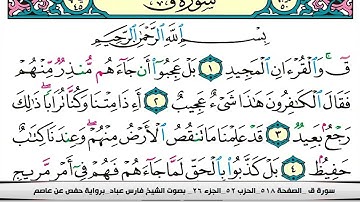 سورة ق
بِسْمِ اللَّهِ الرَّحْمَٰنِ الرَّحِيمِ
قٓ ۚ وَالْقُرْءَانِ الْمَجِيدِ ١ بَلْ عَجِبُوٓا۟ أَن جَآءَهُم مُّنذِرٌ مِّنْهُمْ
فَقَالَ الْكَٰفِرُونَ هَٰذَا شَىْءٌ عَجِيبٌ ٢ أَءِذَا مِتْنَا وَكُنَّا تُرَابًا ۖ ذَٰلِكَ
رَجْعٌۢ بَعِيدٌ ٣ قَدْ عَلِمْنَا مَا تَنقُصُ الْأَرْضُ مِنْهُمْ ۖ وَعِندَنَا كِتَٰبٌ
حَفِيظٌۢ ٤ بَلْ كَذَّبُوا۟ بِالْحَقِّ لَمَّا جَآءَهُمْ فَهُمْ فِىٓ أَمْرٍ مَّرِيجٍ
سورة ق _ الصفحة ٥١٨ _ الحزب ٥٢ _ الجزء ٢٦ _ بصوت الشيخ فارس عباد _ برواية حفص عن عاصم